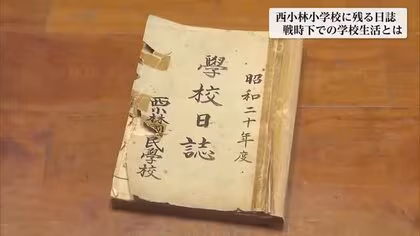 西小林小学校に残る日誌
戦時下での学校生活とは
昭和二十年度
學校日誌
西小林國民學校